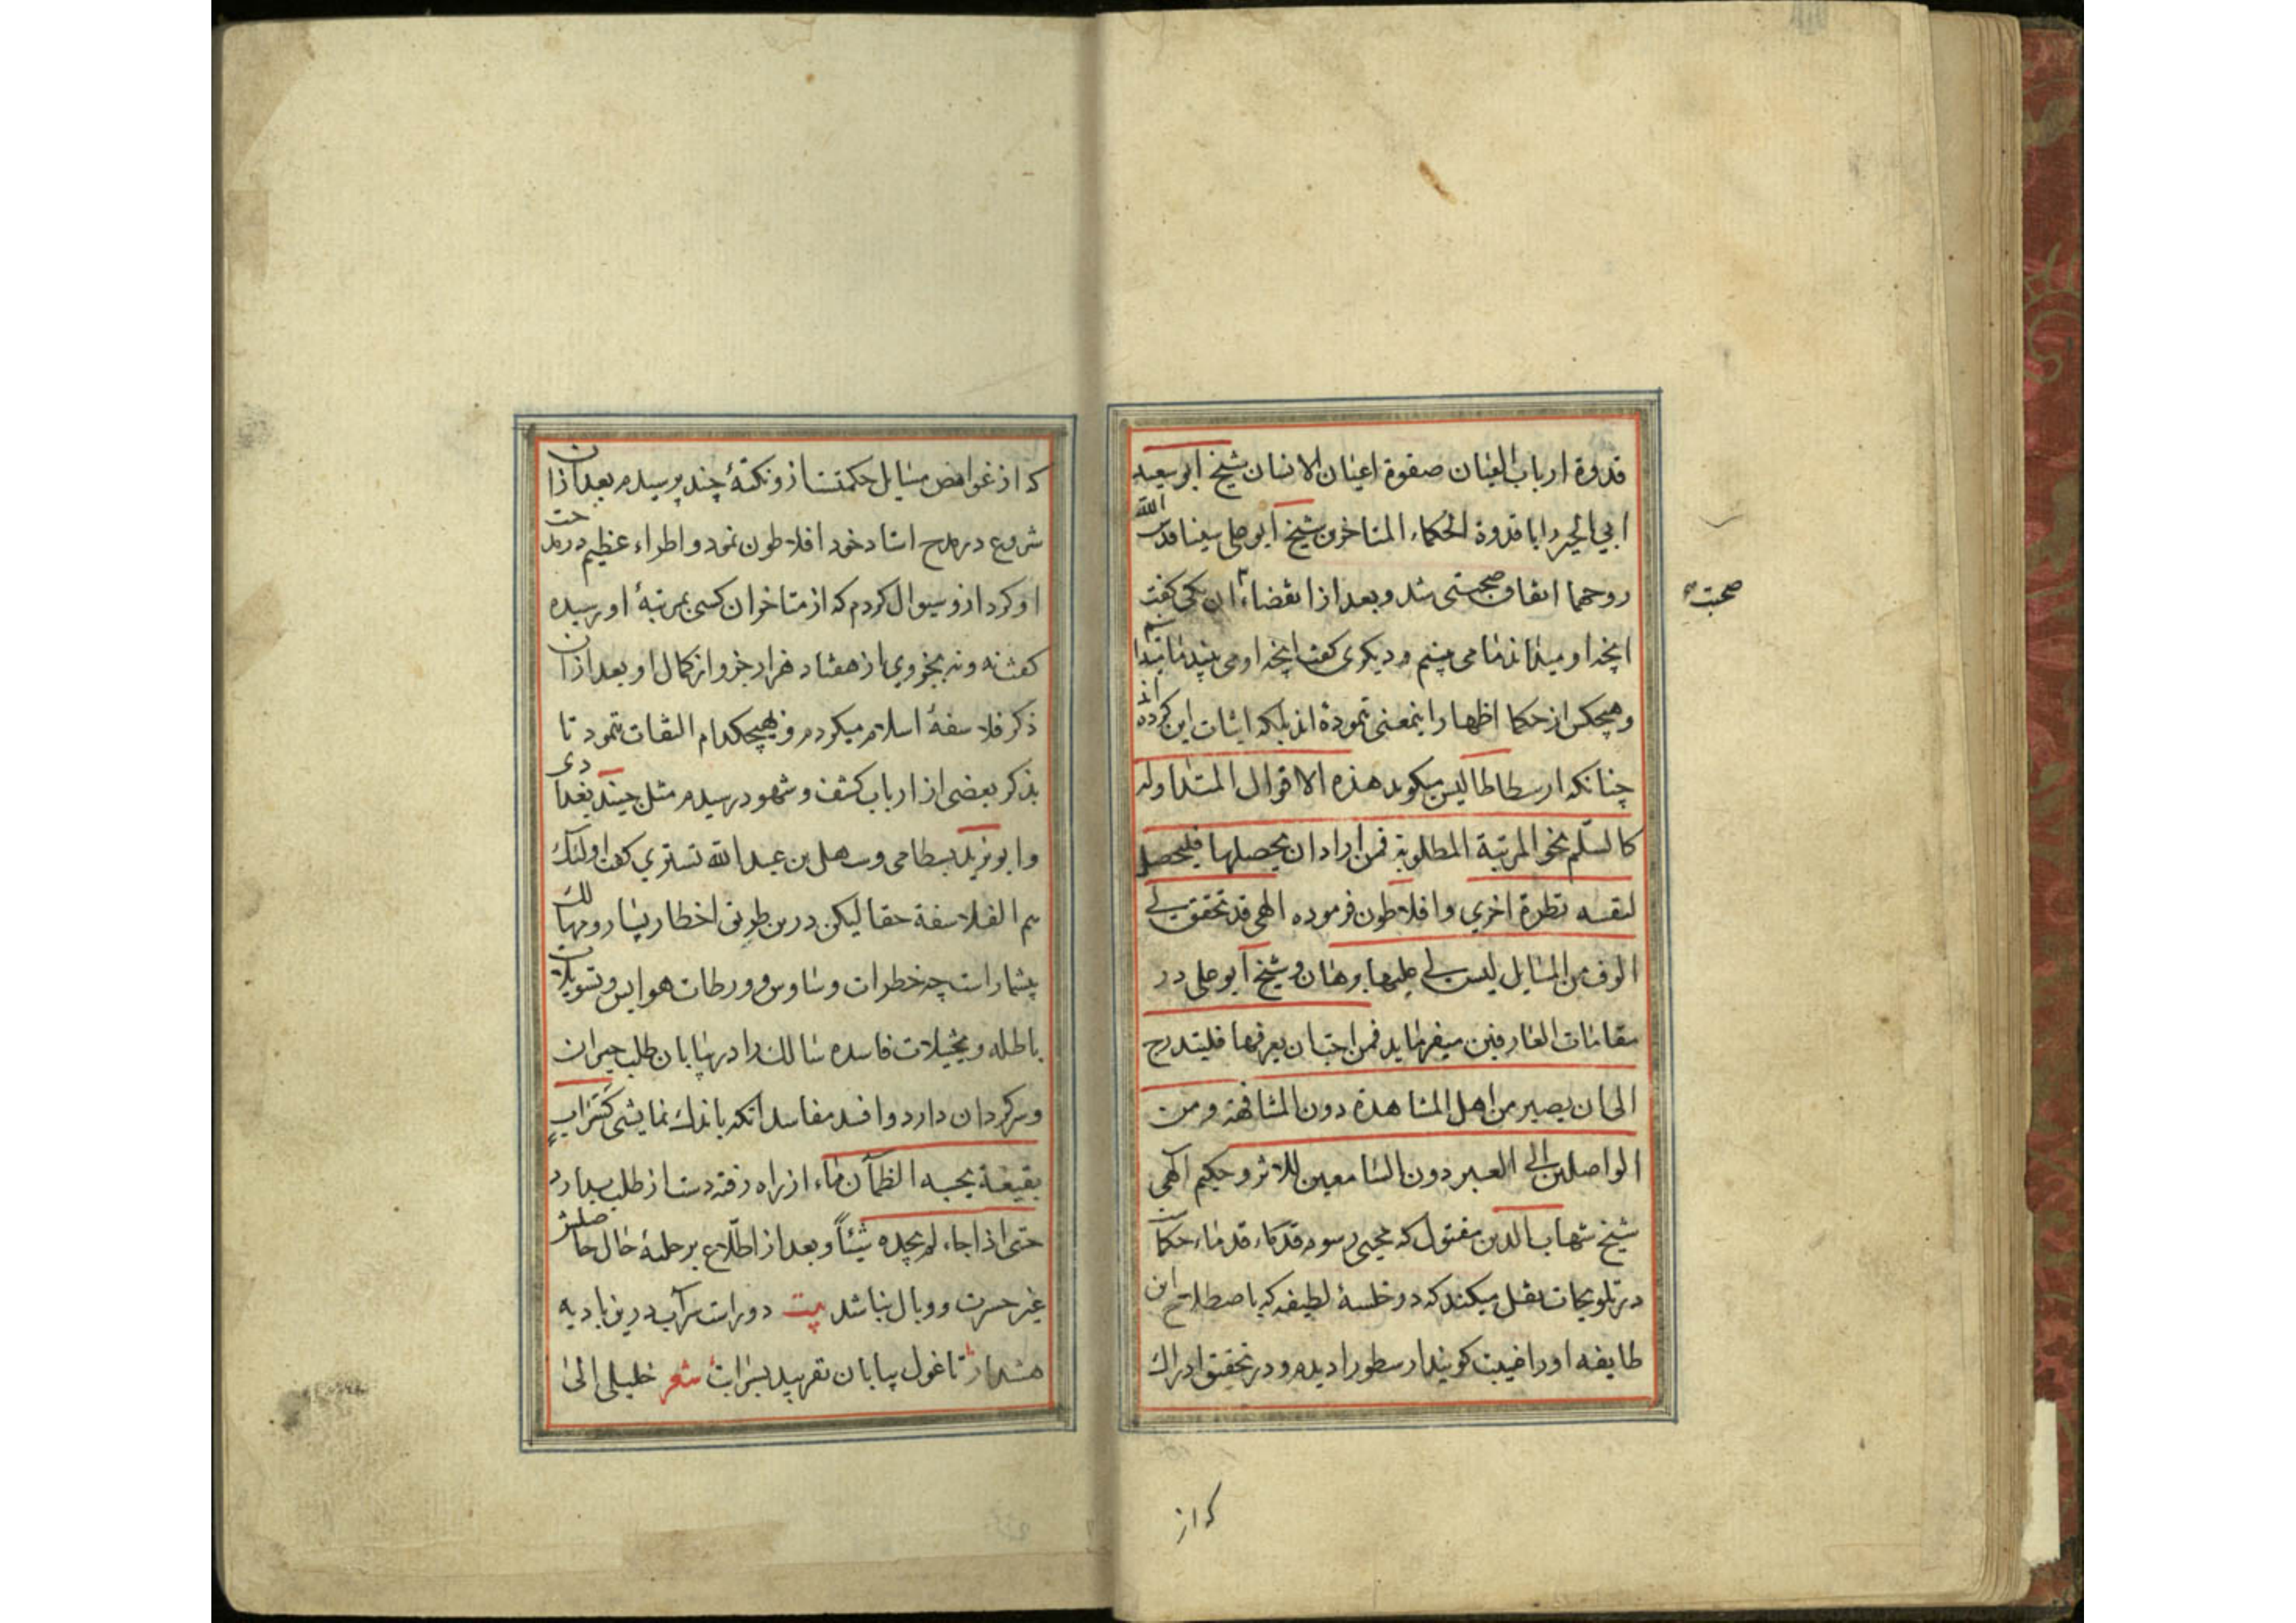 قدوة ارباب العیان صفوة اعیان الانسان شیخ ابو سعید
ابی الخیر را با قدوة الحکماء المتاخرین شیخ ابو علی سینا قدس الله
روحهما اتفاق صحبتی شد و بعد از انقضاء آن یکی گفت
صحبت
آنچه او میداند ما می بینیم و دیگری گفت آنچه او می بیند ما میدانیم
و هیچکس از حکما اظهار اینمعنی ننموده اند بلکه اثبات این کرده اند
چنانکه ارسطاطالیس میگوید هذه الاقوال المتداوله
کالسلّم نحو المرتبة المطلوبة فمن اراد ان یحصلها فلیحصل
لنفسه نظرة اخری و افلاطون فرموده الهی قد تحقق لی
الوف من المسایل لیس لی علیها برهان و شیخ ابو علی در
مقامات العارفین میفرماید فمن احبّ ان یعرفها فلیتدرج
الی ان یصیر من اهل المشاهدة دون المشافهة و من
الواصلین الی العین دون السامعین للاثر و حکیم الهی
شیخ شهاب الدین مقتول که محیی رسوم قدماء حکماست
در تلویحات نقل میکند که در خلسهٔ لطیفه که باصطلاح این
طایفه او را غیبت کویند ارسطو را دیدم و در تحقیق ادراک
که از
که از غوامض مسایل حکمتست از و نکتهٔ چند پرسیدم بعد از آن
شروع در مدح استاد خود افلاطون نمود و اطراء عظیم در مدحت
او کرد ازو سوال کردم که از متاخران کسی بمرتبهٔ او رسیده
گفت نه و نه بجزوی از هفتاد هزار جزو از کمال او بعد از آن
ذکر فلاسفهٔ اسلام میکردم و بهیچکدام التفات ننمود تا
بذکر بعضی از ارباب کشف و شهود رسیدم مثل جنید بغدادی
و ابو یزید بسطامی و سهل بن عبد الله تستری گفت اولئک
هم الفلاسفة حقا لیکن درین طریق اخطار بسیار و مهالک
بیشمار است چه خطرات وساوس و ورطات هواجس و تسویلات
باطله و تخیلات فاسده سالک را در بیابان طلب حیران
و سرکردان دارد و افسد مفاسد آنکه باندک نمایشی کسراب
بقیعة یحسبه الظمآن ماء از راه رفته دست از طلب بدارد
حتی اذا جاءه لم یجده شیئاً و بعد از اطّلاع بر جلیهٔ حال حاصلش
غیر حسرت و وبال نباشد بیت دورست سرآب درین بادیه
هشدار تا غول بیابان نفریبد بسرابت شعر خلیلی الی